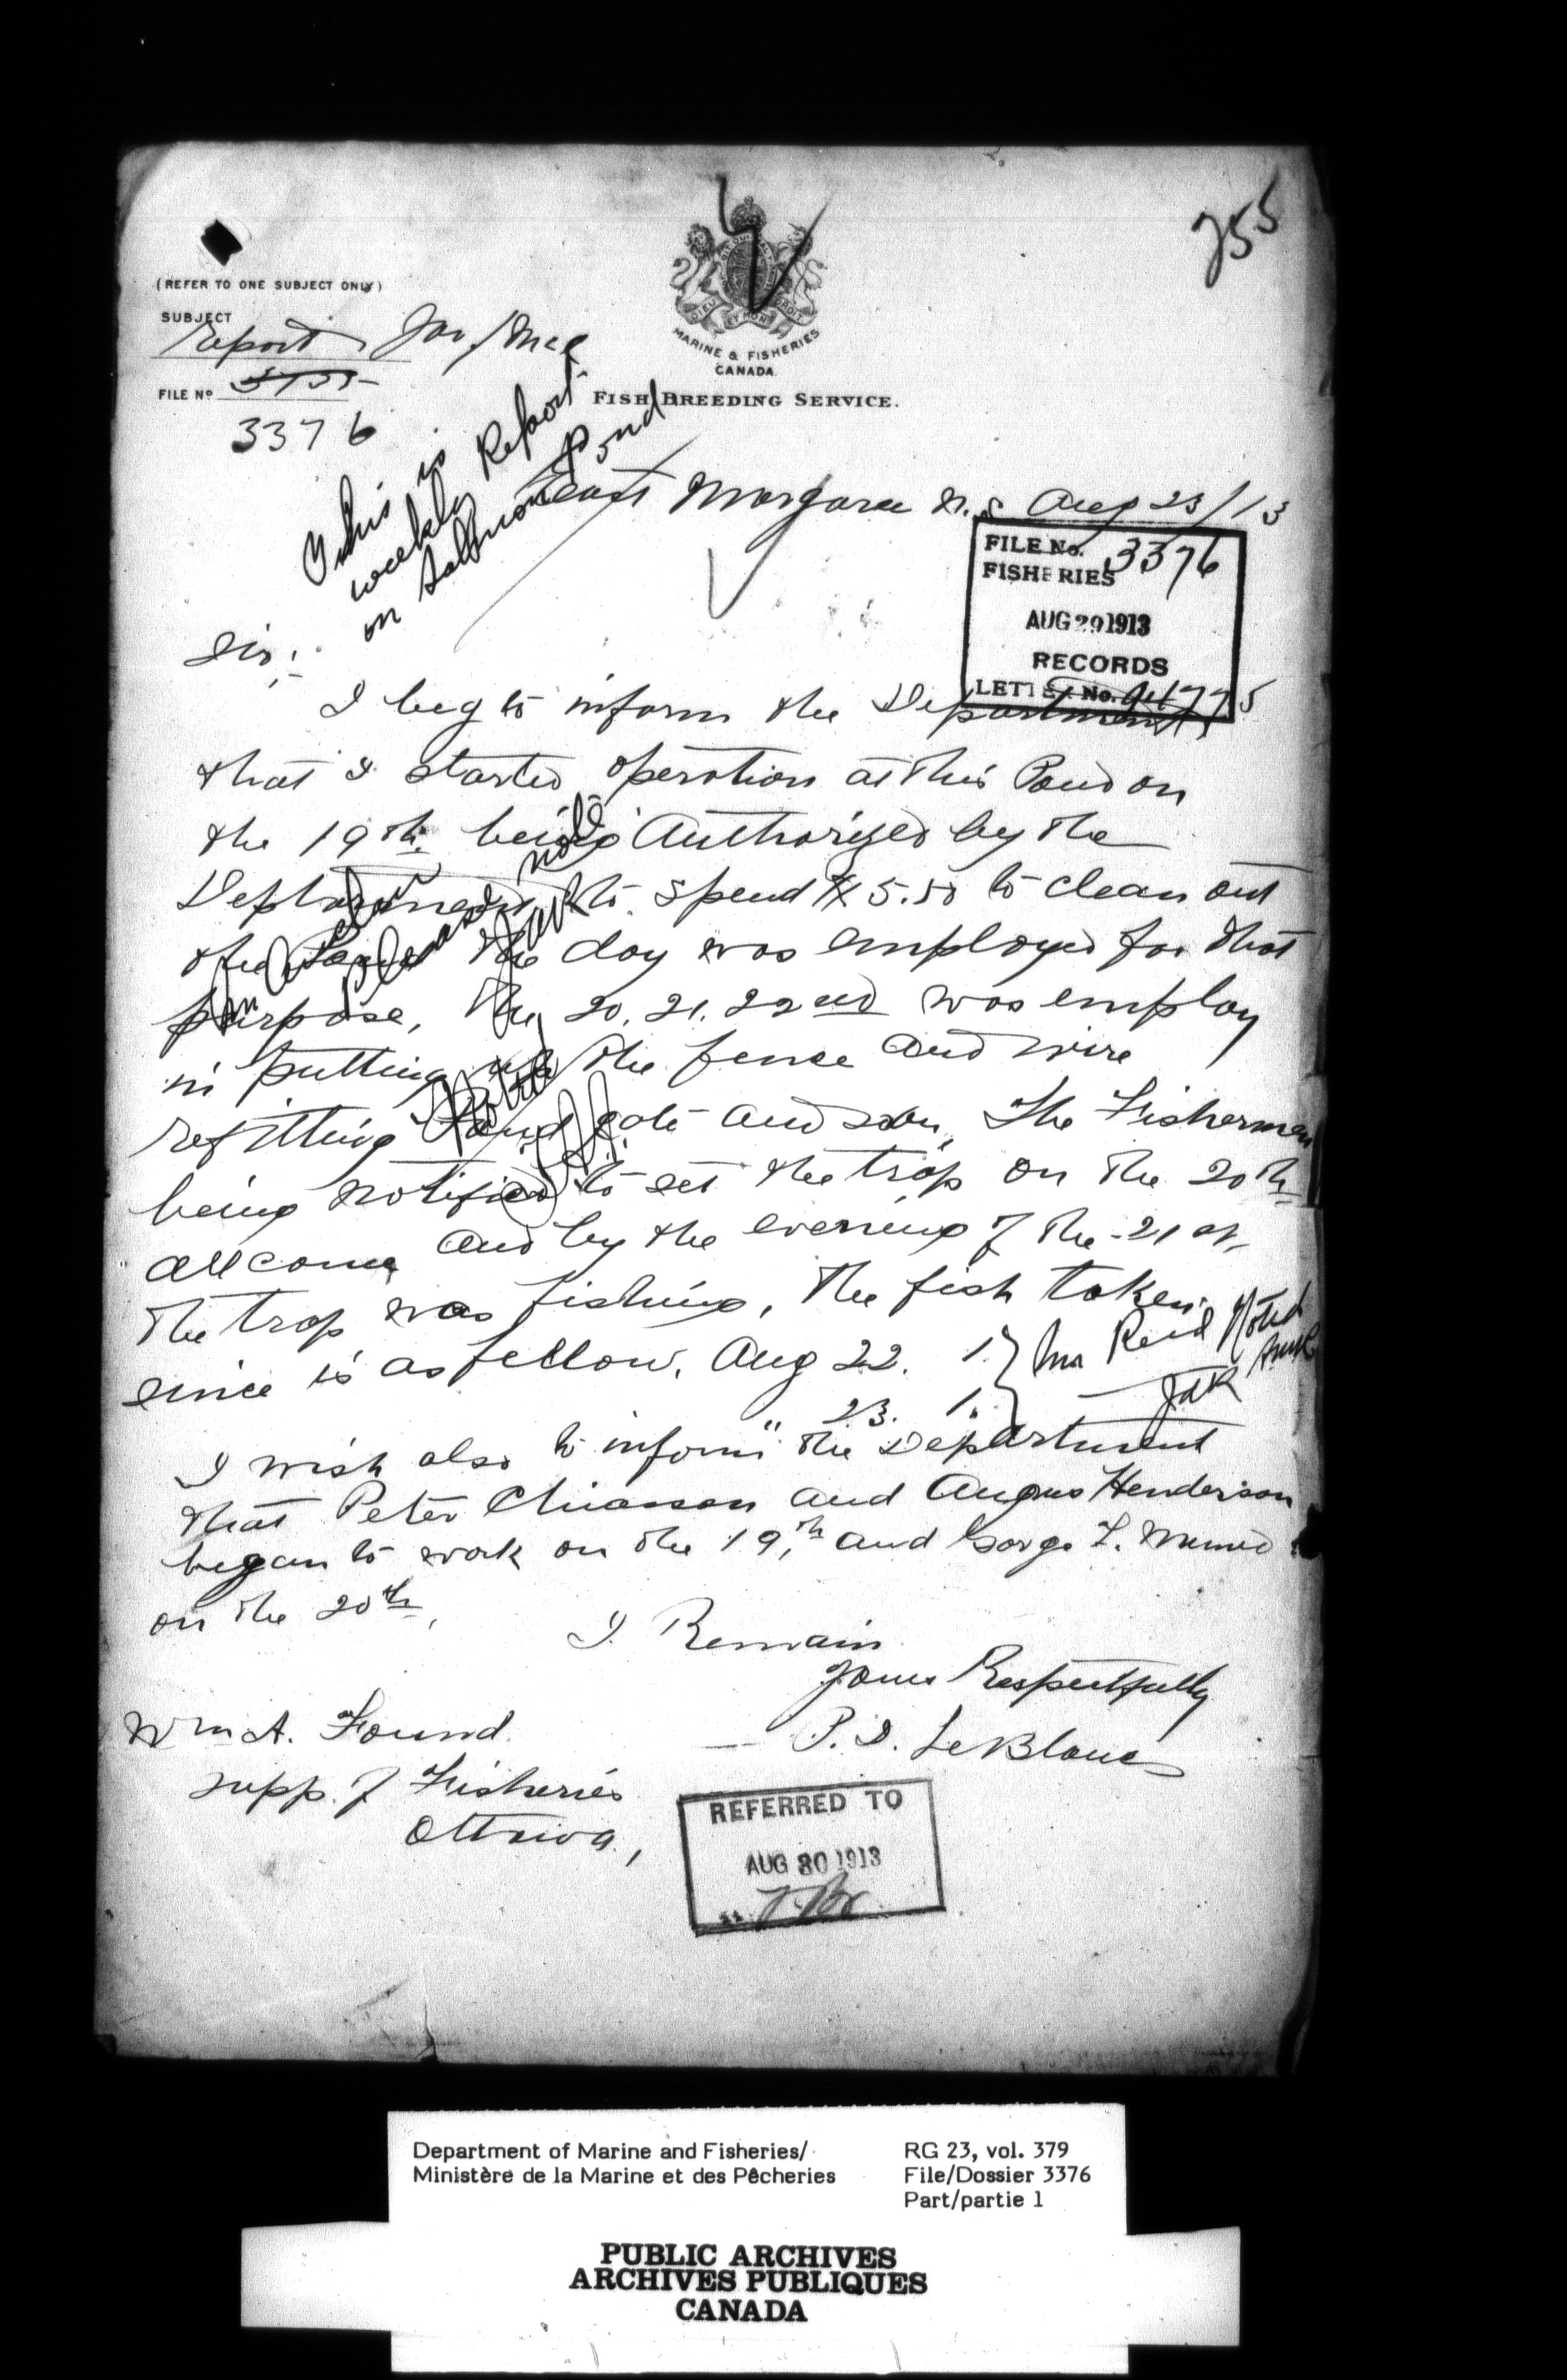 255
(REFER TO ONE SUBJECT ONLY)
SUBJECT
Report
FILE No 3755
3376
DIEU ET MON DROIT
MARINE & FISHERIES
CANADA.
FISH BREEDING SERVICE.
This is
weekly Report
on Salmon Pond
East Margaree N.S. Aug 23/13
FILE No. 3376
FISHERIES
AUG 29 1913
RECORDS
LETTER No.
Sir:
I beg to inform the Department
that I started operation at this Pond on
the 19th being Authorized by the
Department to spend $5.50 to clean out
the Pond the day was employed for that
purpose, The 20. 21. 22nd was employ
in putting up the fence and wire
refitting Pound gate and so on, The Fishermen
being notified to set the trap on the 20th
all come and by the evening of the 21st
The trap was fishing, The fish taken
since is as fellow. Aug 22. 1.
" 23. 1.
Mr Reid Noted
JAR
please note
I wish also to inform the Department
that Peter Chiasson and Angus Henderson
began to work on the 19th, and George F.
on the 20th,
I Remain
Yours Respectfully
P. D. LeBlanc
Wm A. Found
Supp. of Fisheries
Ottawa,
REFERRED TO
AUG 30 1913
Department of Marine and Fisheries/
Ministère de la Marine et des Pêcheries
RG 23, vol. 379
File/Dossier 3376
Part/partie 1
PUBLIC ARCHIVES
ARCHIVES PUBLIQUES
CANADA